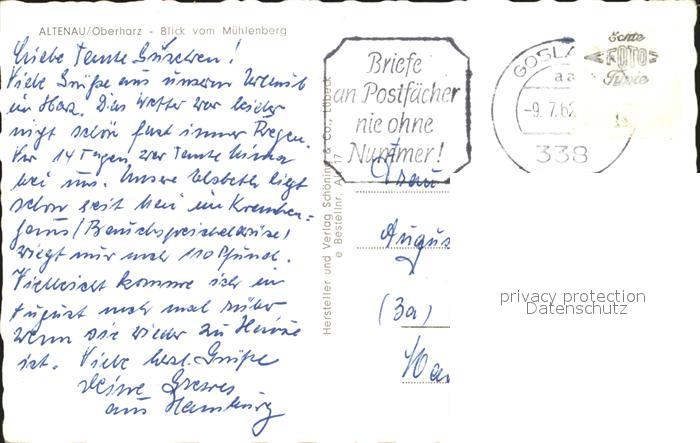 ALTENAU/Oberharz - Blick vom Mühlenberg
Liebe Tante Gustchen!
Viele Grüße aus unserm Urlaub
im Harz. Das Wetter war leider
nicht schön fast immer Regen.
Vor 14 Tagen war Tante Minna
bei uns. Unsere Elsbeth liegt
schon seit Mai im Kranken=
haus (Bauchspeicheldrüse)
wiegt nur noch 110 Pfund.
Vielleicht komme ich im
August noch mal rüber
wenn sie wieder zu Hause
ist. Viele herzl. Grüße
Deine
aus Hamburg
Hersteller und Verlag Schöning & Co., Lübeck
e Bestellnr. A 17
Briefe
an Postfächer
nie ohne
Nummer!
GOSLA
aa
-9.7.62
338
Echte
FOTO
Frau
Augus
(3a)
privacy protection
Datenschutz